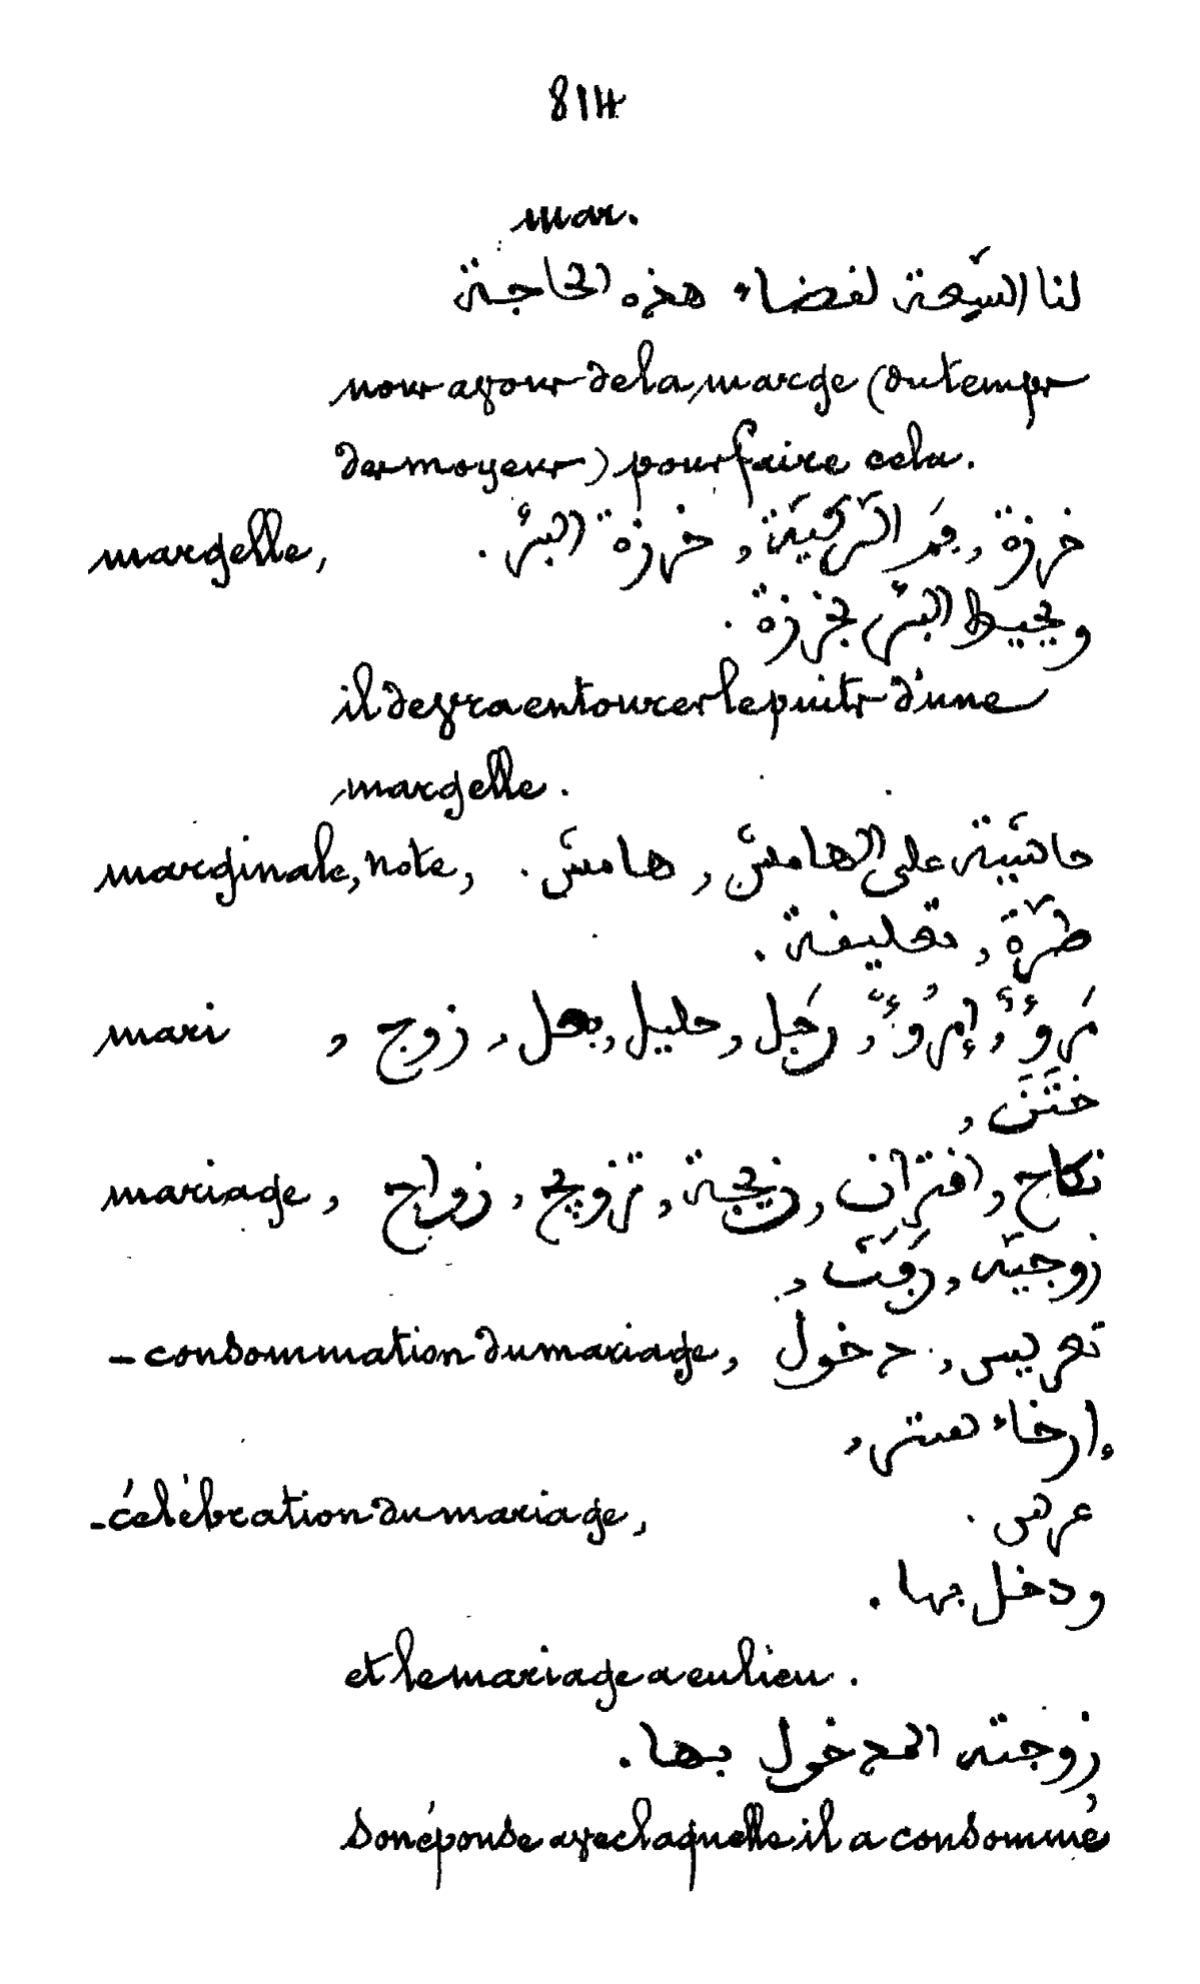 814
mar.
لنا السّعة لقضاء هذه الحاجة
nous avons de la marge (du temps
des moyens) pour faire cela.
margelle, خرزة, فم الرّكيّة, خرزة البئر.
ويحيط البئر بخرزة.
il devra entourer le puits d'une
margelle.
marginale, note, حاشيّة على الهامش, هامش.
طرّة, تعليقة.
mari, زوج, بعل, حليل, رجل, إمرؤ, مرؤ
ختن,
mariage, زواج, تزويج, زيجة, اقتران, نكاح
زوجيّة,
- consommation du mariage, دخول, تعريس
إرخاء ستر,
- célébration du mariage, عرس.
ودخل بها.
et le mariage a eu lieu.
زوجته المدخول بها.
son épouse avec laquelle il a consommé